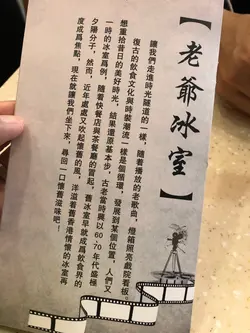 【老爺冰室】
讓我們走進時光隧道的一樣，隨着播放的老歌曲，燈箱照亮戲院看板，
復古的飲食文化與時裝潮流一樣是個循環，發展到某個位置，人們又
想重拾昔日的美好時光，結果還原基本步，古老當時興。以60-70年代盛極
一時的冰室爲例，隨着快餐店與茶餐廳的冒起，舊冰室早就成爲飲食界的
夕陽分子，然而，近年處處又吹起懷舊的風，洋溢着舊香港情懷的冰室再
度成爲焦點，現在就讓我們坐下來，尋回一口懷舊滋味吧！